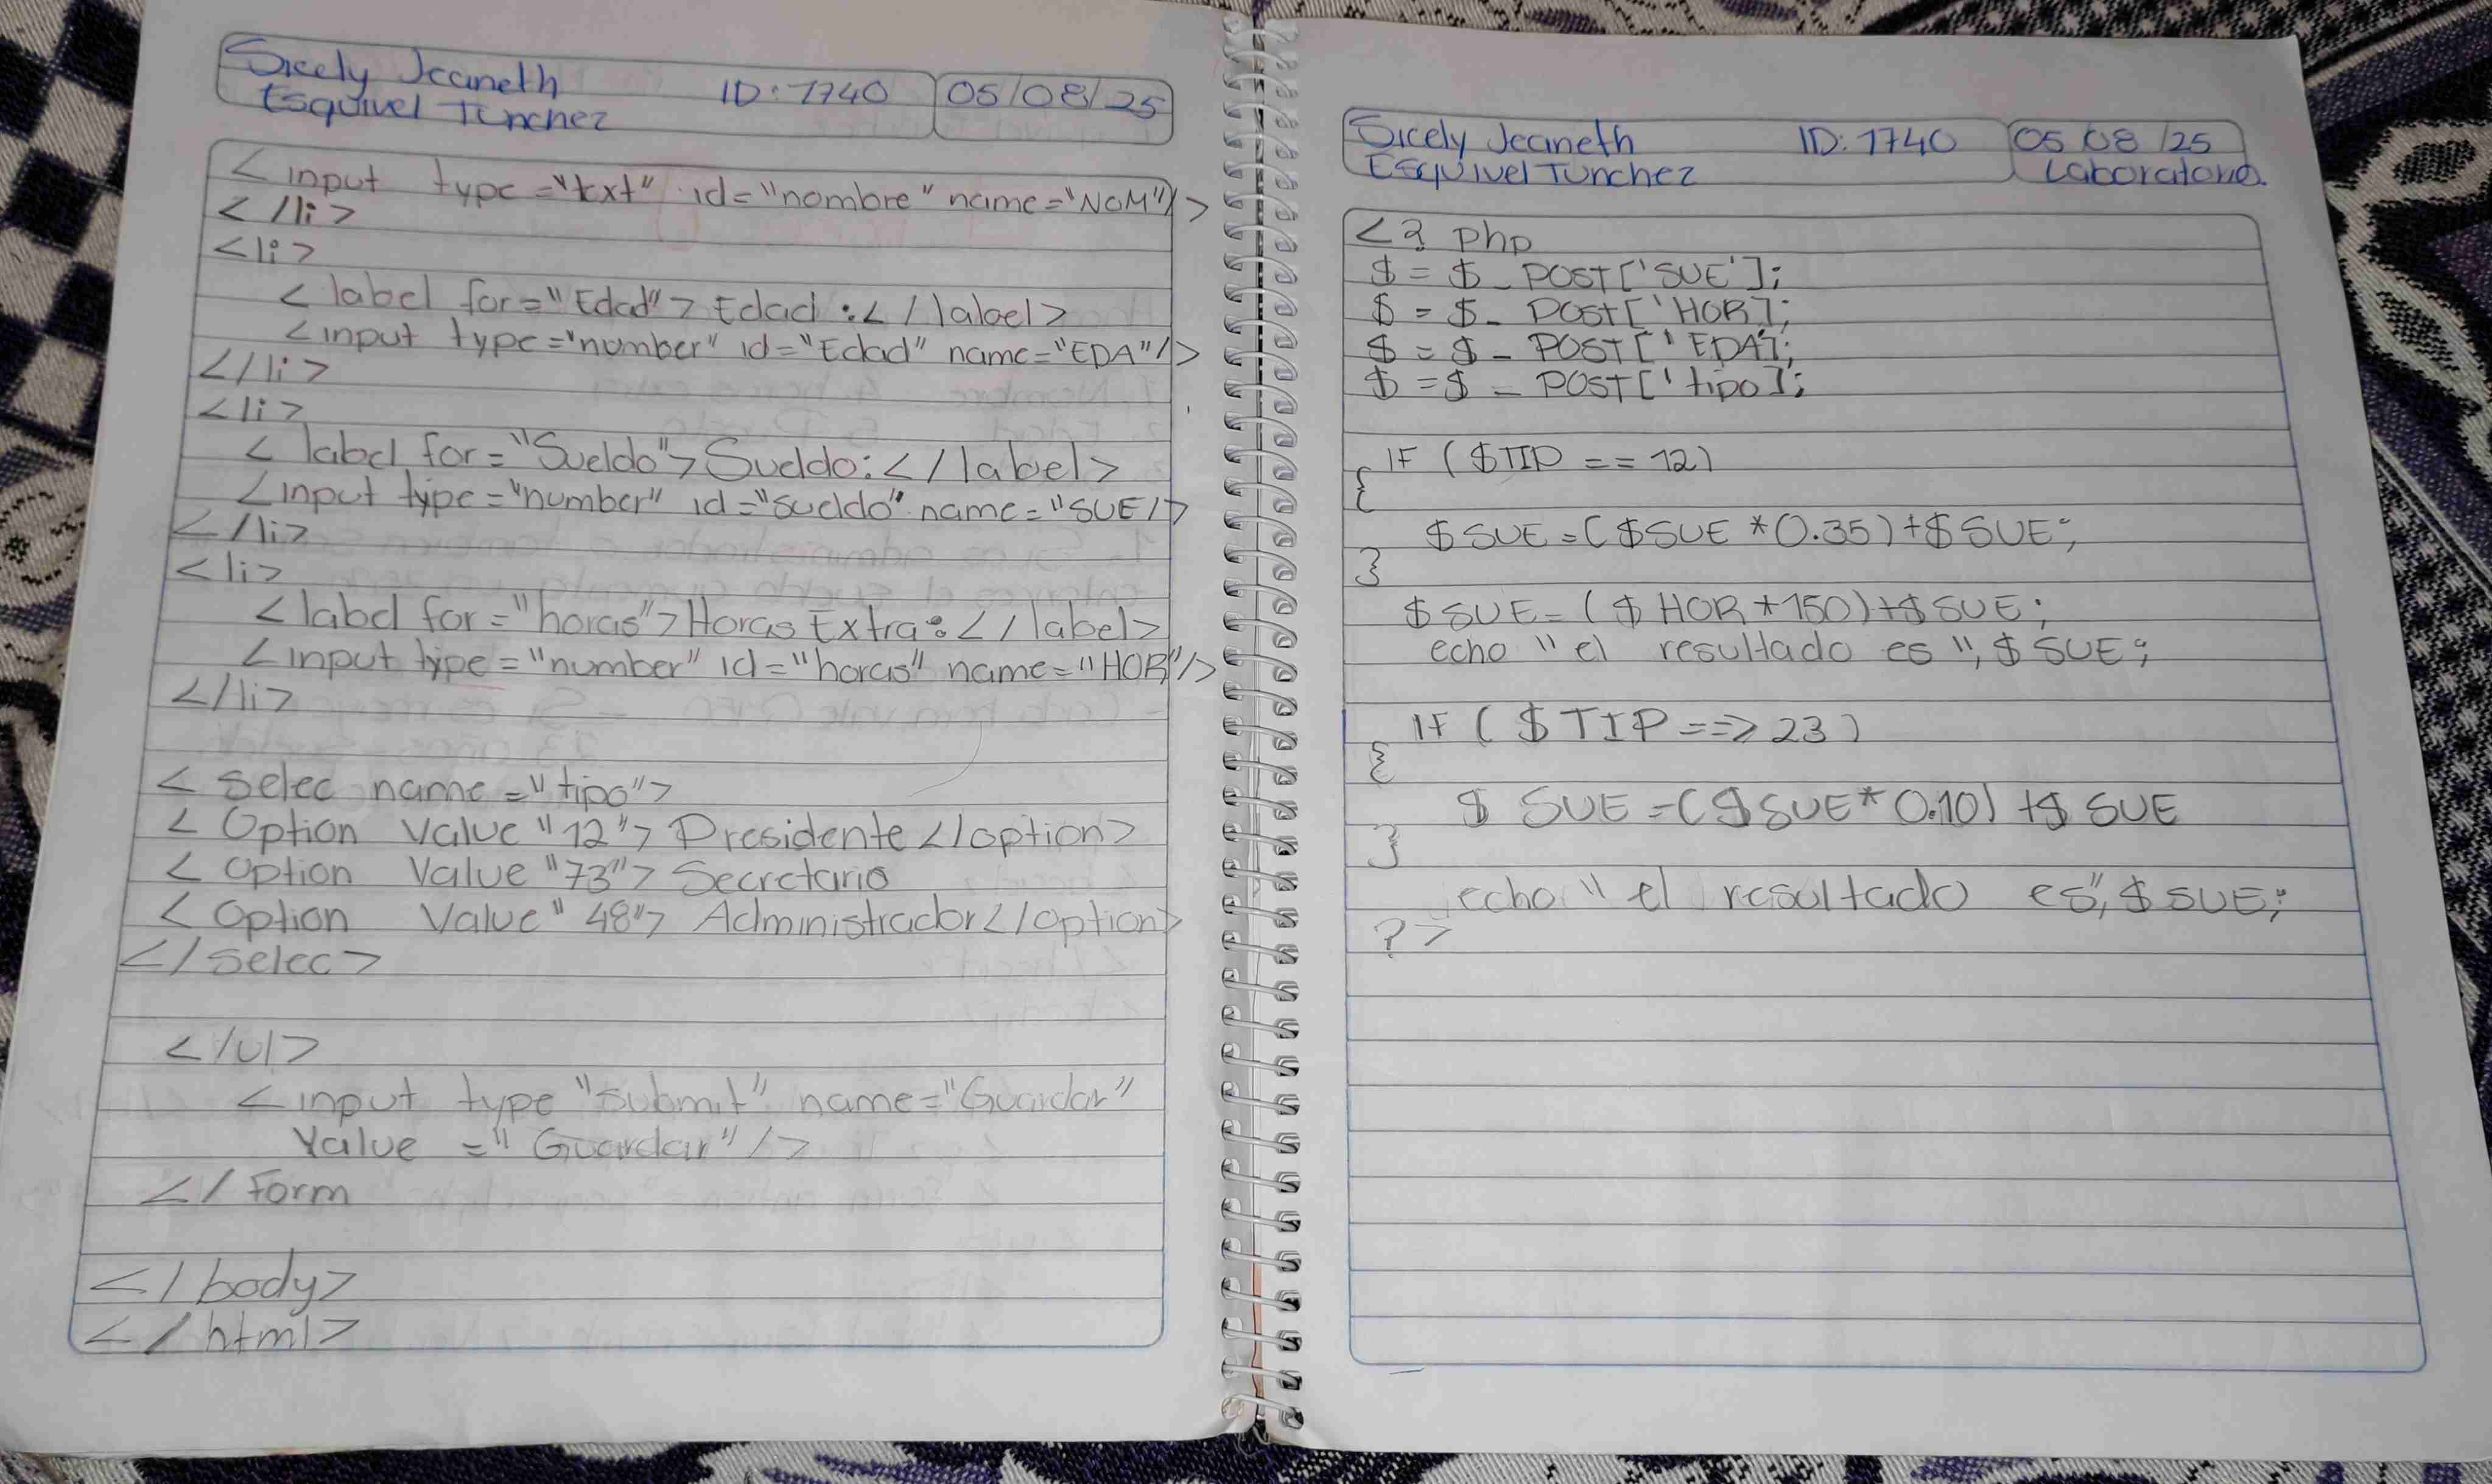 Sicely Jeaneth ID: 1740 05/08/25
Esquivel Tunchez
<input type="txt" id="nombre" name="NOM"/>
</li>
<li>
<label for="Edad">Edad:</label>
<input type="number" id="Edad" name="EDA"/>
</li>
<li>
<label for="Sueldo">Sueldo:</label>
<input type="number" id="sueldo" name="SUE/>
</li>
<li>
<label for="horas">Horas Extra:</label>
<input type="number" id="horas" name="HOR"/>
</li>
<selec name="tipo">
<Option Value "12">Presidente</option>
<Option Value "73">Secretario
<Option Value "48">Administrador</option>
</selec>
</ul>
<input type "submit" name="Guardar"
Value="Guardar"/>
</Form
</body>
</html>
Sicely Jeaneth ID: 1740 05/08/25
Esquivel Tunchez Laboratorio.
<? php
$ = $_POST['SUE'];
$ = $_POST['HOR];
$ = $_POST['EDA'];
$ = $_POST['tipo];
IF ($TIP == 12)
{
$SUE=($SUE*0.35)+$SUE;
}
$SUE=($HOR*150)+$SUE;
echo "el resultado es", $SUE;
IF ($TIP ==> 23)
{
$SUE=($SUE*0.10)+$SUE
}
echo "el resultado es", $SUE;
?>